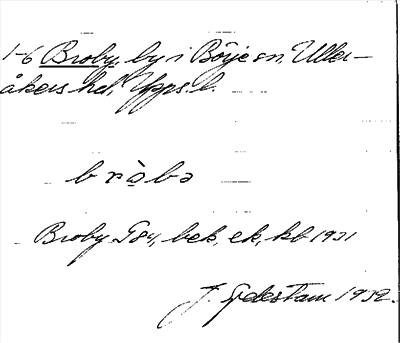 1-6 Broby, by i Börje sn. Uller-
åkers hd, Upps. l.
bròbə
Broby T84, bek, ek, kb 1931
J. Gdestam 1932.